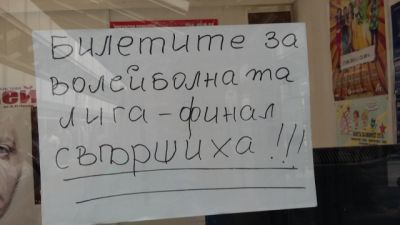 Билетите за
волейболната
лига - финал
свършиха !!!